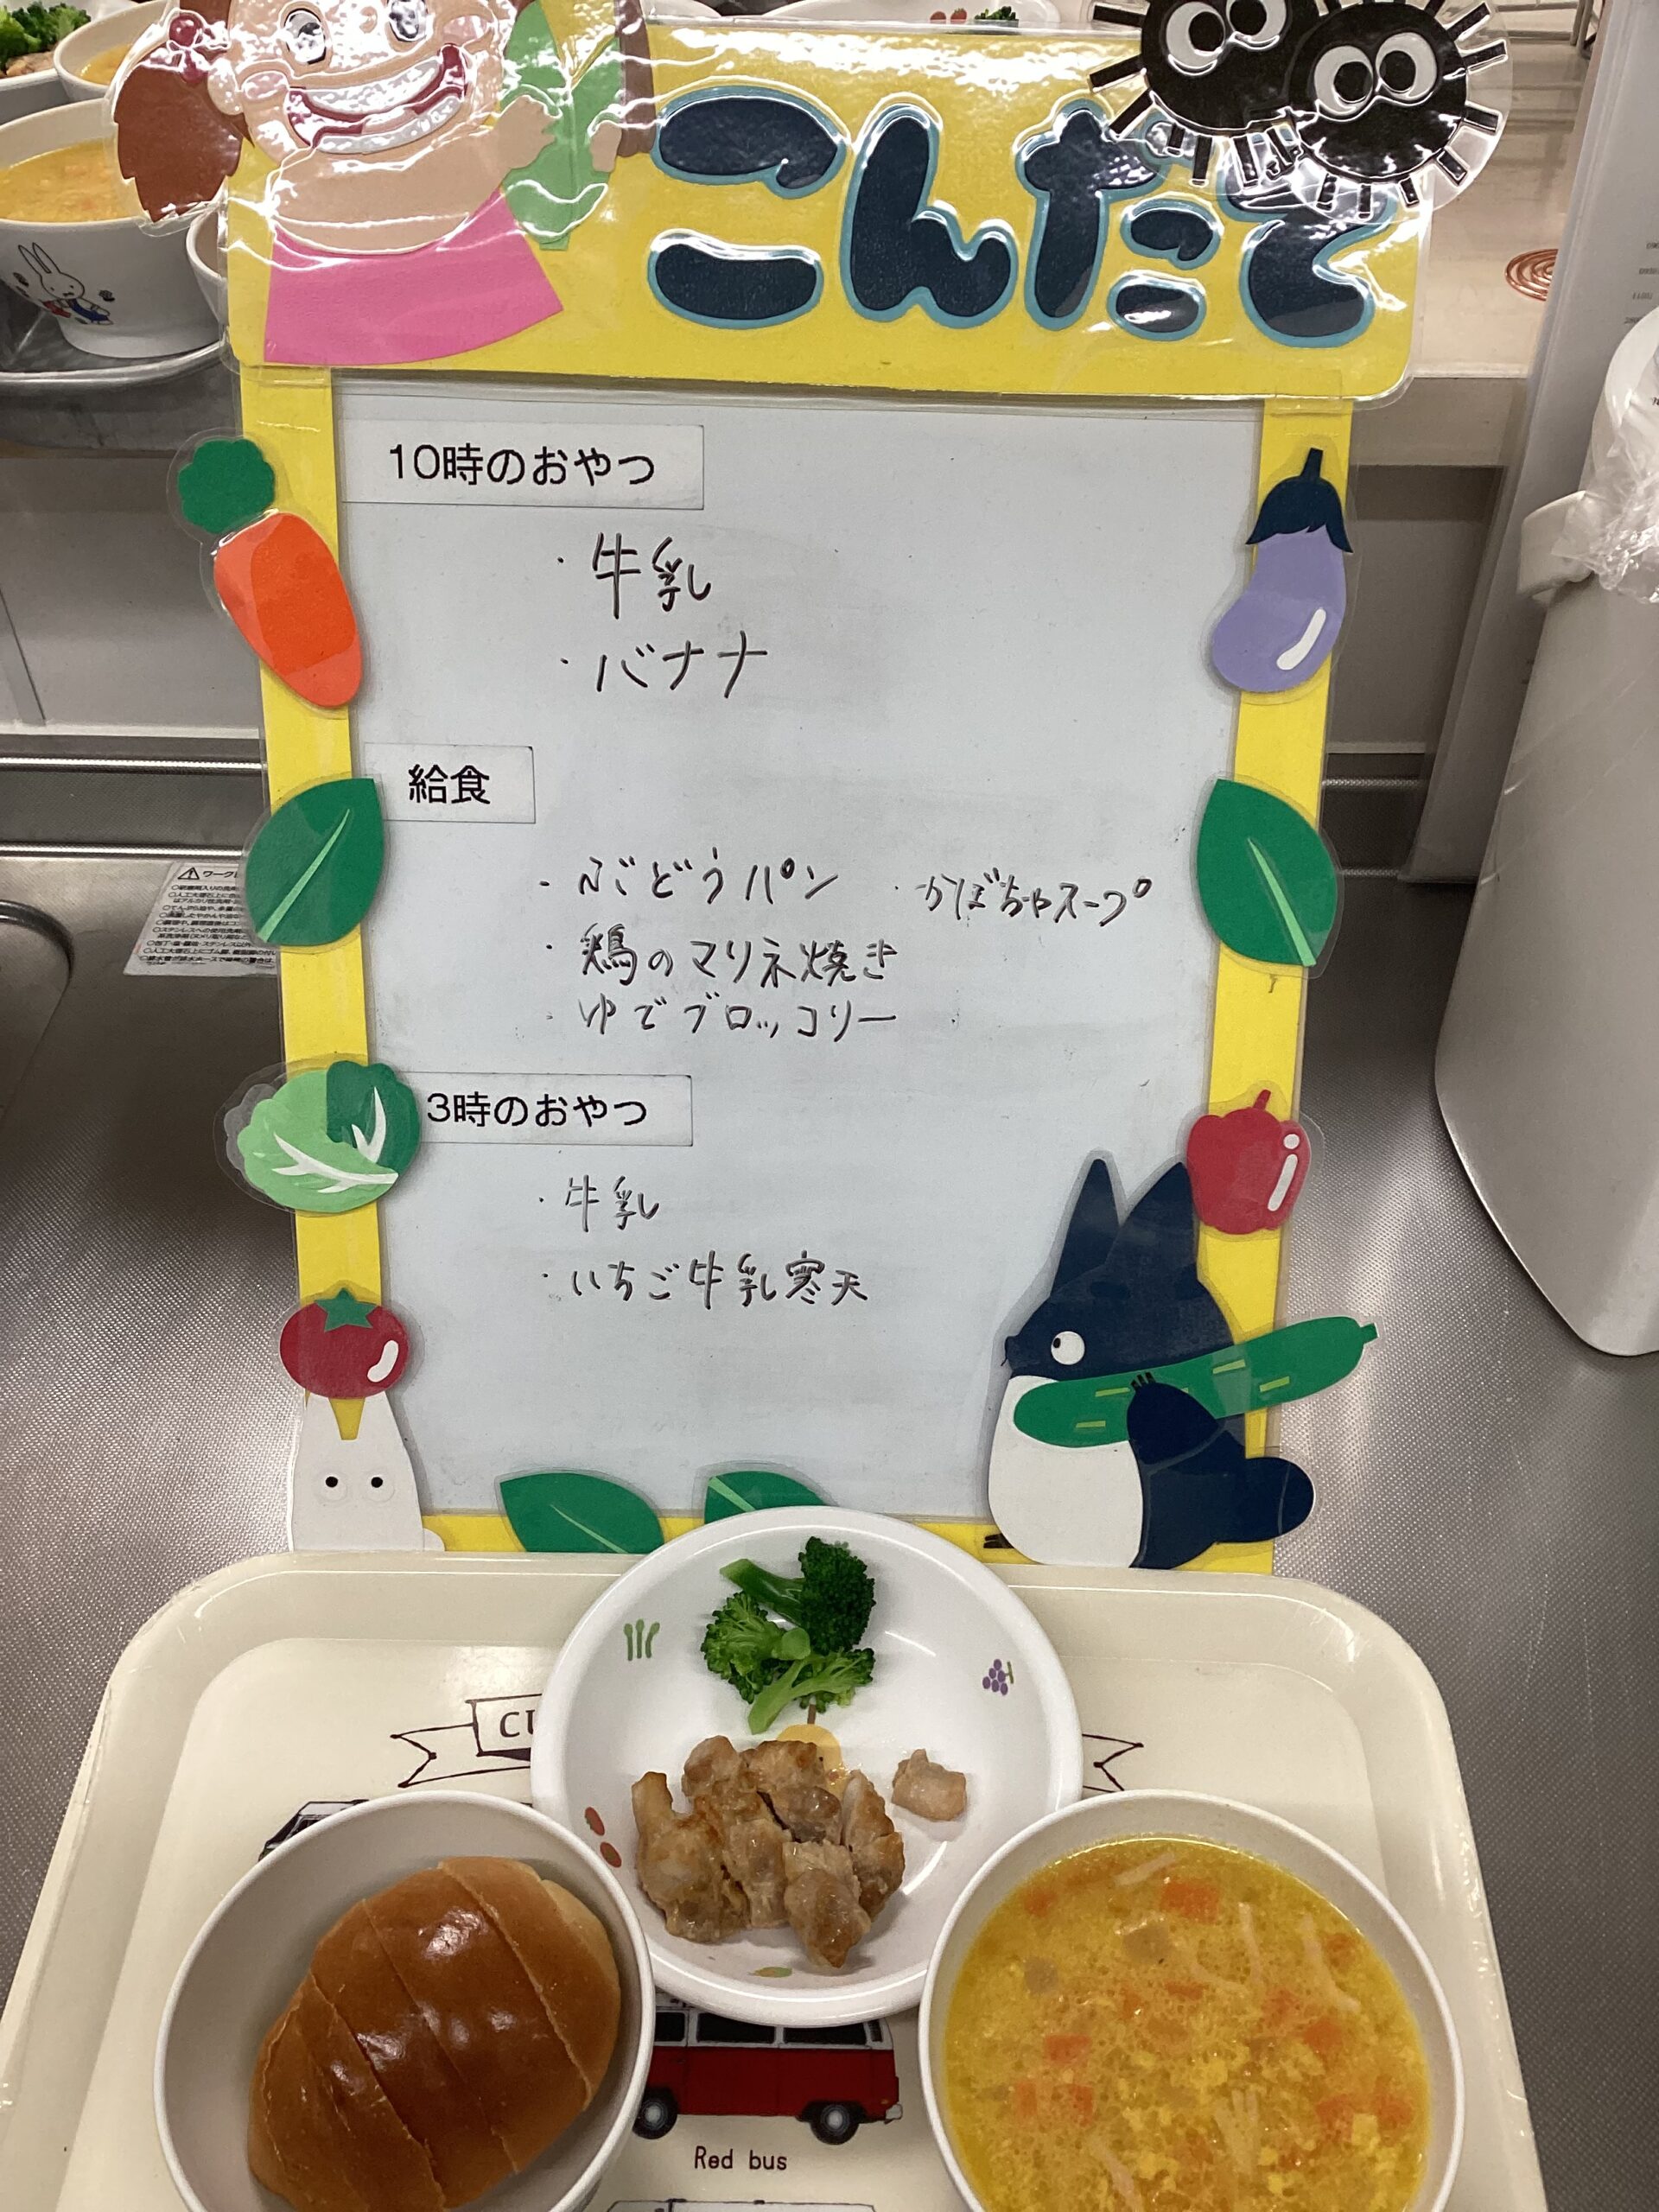 こんだて
10時のおやつ
・牛乳
・バナナ
給食
・ぶどうパン ・かぼちゃスープ
・鶏のマリネ焼き
・ゆでブロッコリー
3時のおやつ
・牛乳
・いちご牛乳寒天
Red bus